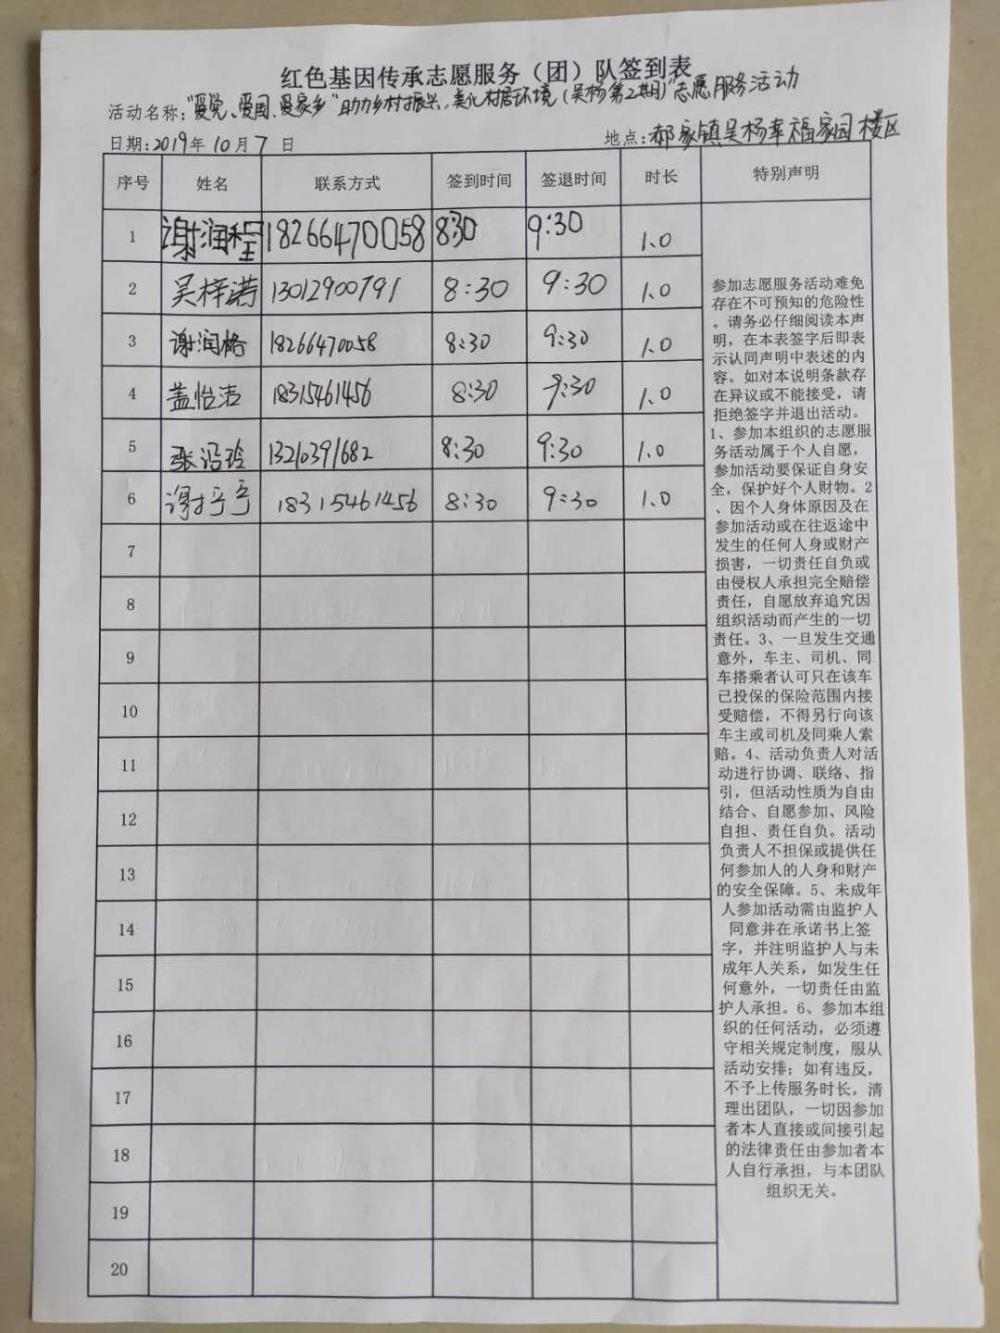 红色基因传承志愿服务（团）队签到表
活动名称:“爱党、爱国、爱家乡”助力乡村振兴，美化村居环境（吴杨第2期）”志愿服务活动
日期:2019年10月7日 地点:郝家镇吴杨幸福家园楼区
序号 姓名 联系方式 签到时间 签退时间 时长 特别声明
1 谢润程 18266470058 8:30 9:30 1.0
2 吴梓诺 13012900791 8:30 9:30 1.0
3 谢润格 18266470058 8:30 9:30 1.0
4 盖怡洁 18315461456 8:30 9:30 1.0
5 张滔玲 13210391682 8:30 9:30 1.0
6 谢拧宁 18315461456 8:30 9:30 1.0
7
8
9
10
11
12
13
14
15
16
17
18
19
20
参加志愿服务活动难免
存在不可预知的危险性
。请务必仔细阅读本声
明，在本表签字后即表
示认同声明中表述的内
容。如对本说明条款存
在异议或不能接受，请
拒绝签字并退出活动。
1、参加本组织的志愿服
务活动属于个人自愿，
参加活动要保证自身安
全，保护好个人财物。2
、因个人身体原因及在
参加活动或在往返途中
发生的任何人身或财产
损害，一切责任自负或
由侵权人承担完全赔偿
责任，自愿放弃追究因
组织活动而产生的一切
责任。3、一旦发生交通
意外，车主、司机、同
车搭乘者认可只在该车
已投保的保险范围内接
受赔偿，不得另行向该
车主或司机及同乘人索
赔。4、活动负责人对活
动进行协调、联络、指
引，但活动性质为自由
结合、自愿参加、风险
自担、责任自负。活动
负责人不担保或提供任
何参加人的人身和财产
的安全保障。5、未成年
人参加活动需由监护人
同意并在承诺书上签
字，并注明监护人与未
成年人关系，如发生任
何意外，一切责任由监
护人承担。6、参加本组
织的任何活动，必须遵
守相关规定制度，服从
活动安排；如有违反，
不予上传服务时长，清
理出团队，一切因参加
者本人直接或间接引起
的法律责任由参加者本
人自行承担，与本团队
组织无关。